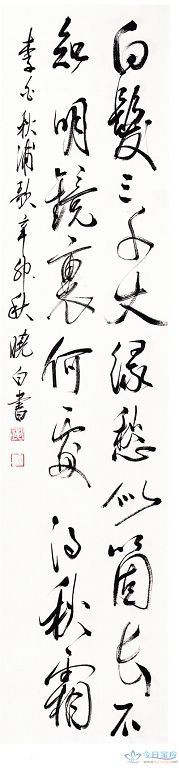 白髮三千丈緣愁似箇長不
知明鏡裏何處得秋霜
李白秋浦歌辛卯秋曉白書